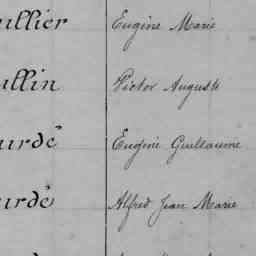 ullier Eugène Marie
ullin Victor Auguste
urdé Eugène Guillaume
urdé Alfred Jean Marie